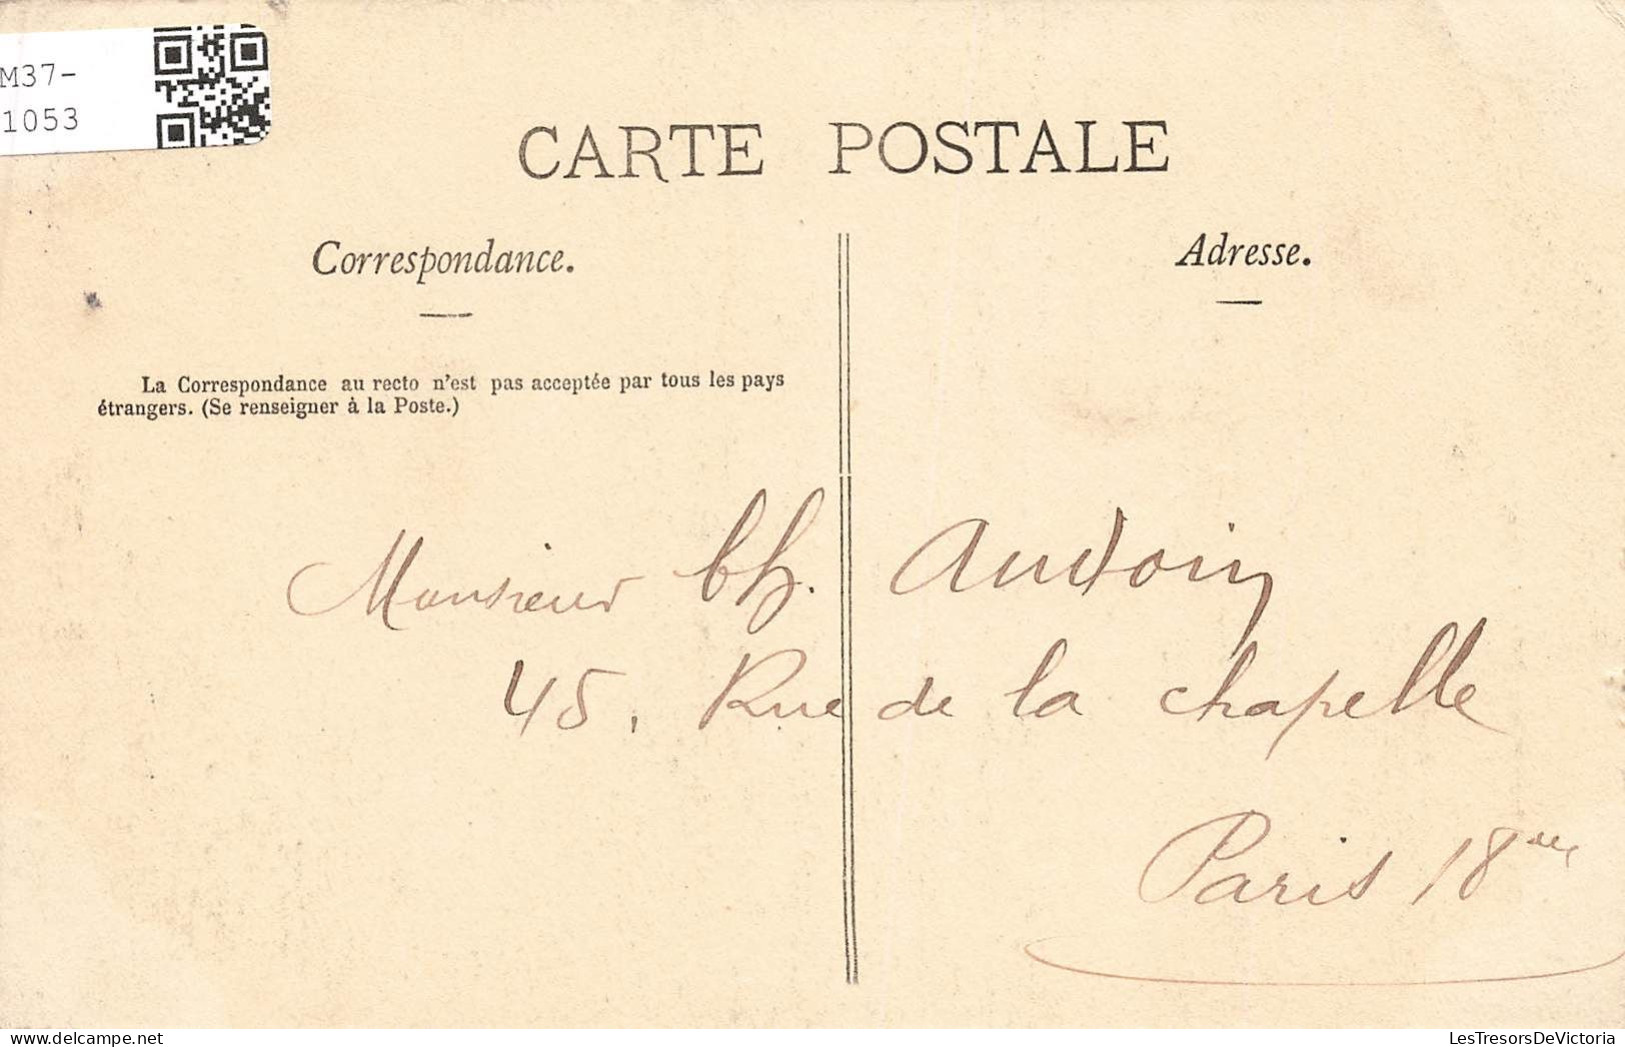 M37-
1053
CARTE POSTALE
Correspondance.
Adresse.
La Correspondance au recto n'est pas acceptée par tous les pays
étrangers. (Se renseigner à la Poste.)
Monsieur Ch. Audoin
45, Rue de la chapelle
Paris 18me
LesTresorsDeVictoria